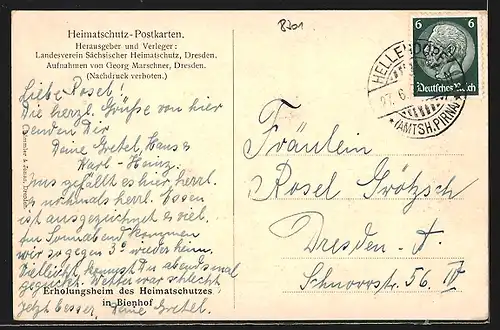 Heimatschutz-Postkarten.
Herausgeber und Verleger:
Landesverein Sächsischer Heimatschutz, Dresden.
Aufnahmen von Georg Marschner, Dresden.
(Nachdruck verboten.)
Liebe Rosel!
Die herzl. Grüße von hier
senden Dir
Deine Gretel, Hans u.
Karl-Heinz.
Uns gefällt es hier, herrl.
nochmals herrl. Essen
ist ausgezeichnet u. viel.
Am Sonnabend kommen
wir so gegen 3° wieder heim.
Vielleicht kommst Du abends mal
geguckt. Wetter war schlecht,
jetzt besser. Deine Gretel.
Erholungsheim des Heimatschutzes
in Bienhof
6 6
Deutsches Reich
HELLENDORF
(AMTSH. PIRNA)
Fräulein
Rosel Grötzsch
Dresden-A.
Schnorrstr. 56 IV